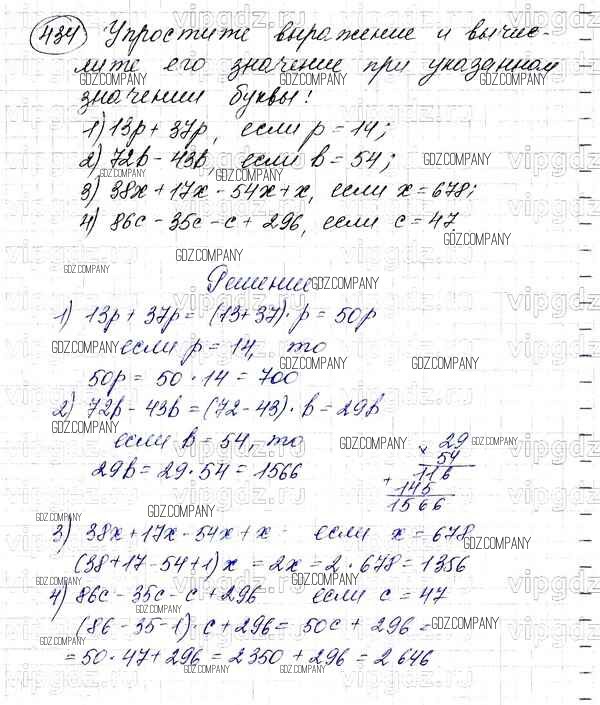 484 Упростите выражение и вычис-
лите его значение при указанном
значении буквы:
1) 13p + 37p, если p = 14;
2) 72b - 43b, если b = 54;
3) 38x + 17x - 54x + x, если x = 678;
4) 86c - 35c - c + 296, если c = 47
Решение
1) 13p + 37p = (13 + 37) · p = 50p
если p = 14, то
50p = 50 · 14 = 700
2) 72b - 43b = (72 - 43) · b = 29b
если b = 54, то
29b = 29 · 54 = 1566
× 29
54
+ 116
145
1566
3) 38x + 17x - 54x + x если x = 678
(38 + 17 - 54 + 1)x = 2x = 2 · 678 = 1356
4) 86c - 35c - c + 296 если c = 47
(86 - 35 - 1) · c + 296 = 50c + 296 =
= 50 · 47 + 296 = 2350 + 296 = 2646
GDZ.COMPANY
vipgdz.ru